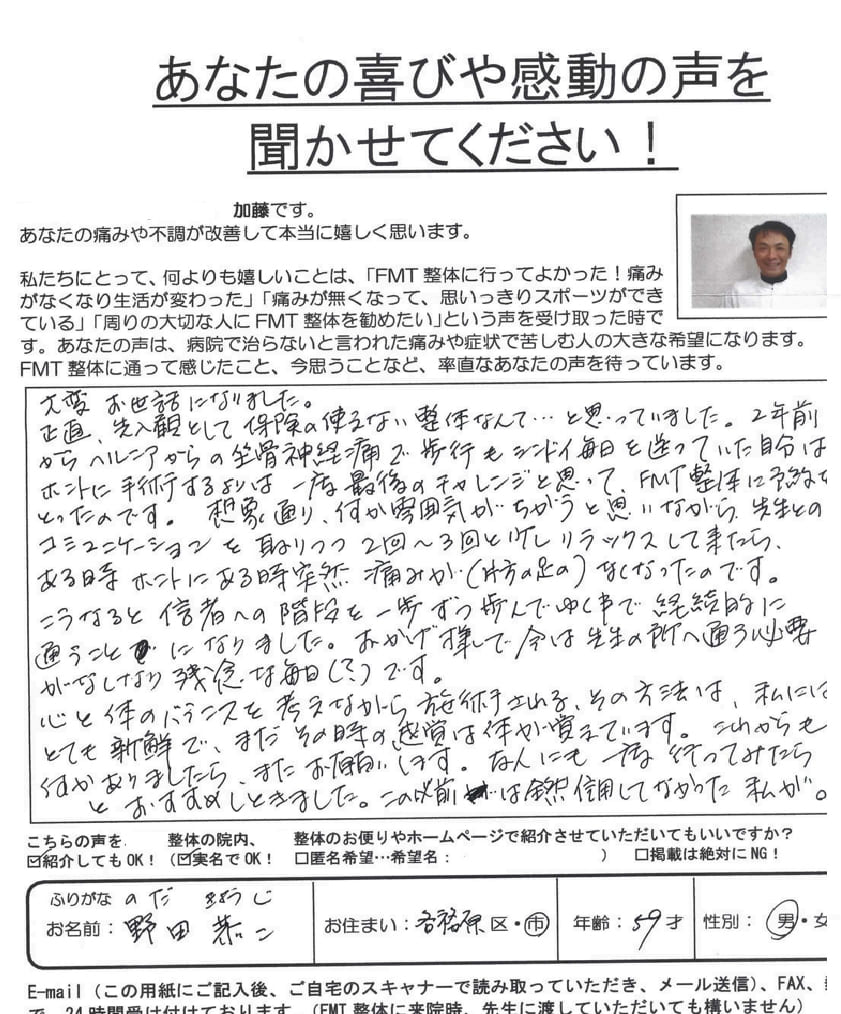 あなたの喜びや感動の声を
聞かせてください！
加藤です。
あなたの痛みや不調が改善して本当に嬉しく思います。
私たちにとって、何よりも嬉しいことは、「FMT 整体に行ってよかった！痛み
がなくなり生活が変わった」「痛みが無くなって、思いっきりスポーツができ
ている」「周りの大切な人に FMT 整体を勧めたい」という声を受け取った時で
す。あなたの声は、病院で治らないと言われた痛みや症状で苦しむ人の大きな希望になります。
FMT 整体に通って感じたこと、今思うことなど、率直なあなたの声を待っています。
大変 お世話になりました。
正直、先入観として 保険の使えない 整体なんて…と思っていました。2年前
からヘルニアからの坐骨神経痛で 歩行も シンドイ毎日を送っていた自分は
ホントに手術するよりは 一度最後のチャレンジと思って、FMT整体に予約を
とったのです。 想像通り、何か雰囲気がちがうと思いながら、先生との
コミュニケーションを取りつつ 2回～3回と少しリラックスして来たら、
ある時 ホントにある時突然 痛みが(片方の足の)なくなったのです。
こうなると 信者への階段を一歩ずつ歩んでゆく事で 継続的に
通うこと になりました。おかげ様で 今は 先生の所へ通う必要
がなくなり 残念な毎日(？)です。
心と体のバランスを 考えながら 施術される、その方法は、私には
とても新鮮で、まだ その時の感覚は体が覚えています。これからも
何かありましたら、またお願いします。なんにも 一度 行ってみたら
と おすすめしときました。この以前 は全然信用してなかった 私が。
こちらの声を 整体の院内、 整体のお便りやホームページで紹介させていただいてもいいですか？
☑紹介しても OK！ (☑実名で OK！ □匿名希望…希望名： ) □掲載は絶対に NG！
ふりがな のだ きょうじ
お名前： 野田 恭二 お住まい：各務原 区・市 年齢：59才 性別：男・女
E-mail（この用紙にご記入後、ご自宅のスキャナーで読み取っていただき、メール送信）、FAX、
で、24 時間受け付けております。（FMT 整体に来院時、先生に渡していただいても構いません）